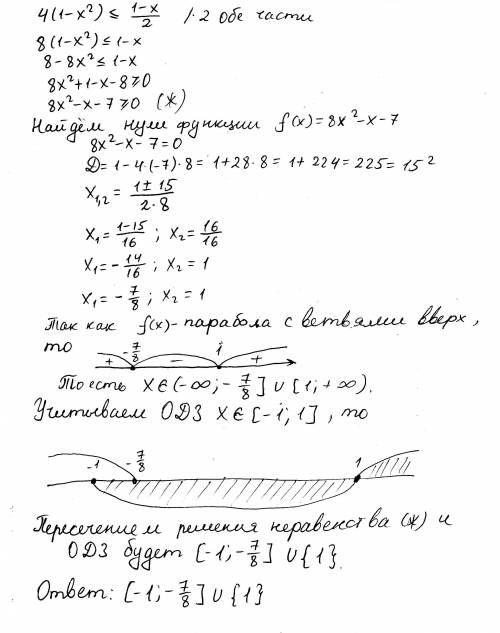 4(1-x²) ≤ (1-x)/2 /·2 обе части
8(1-x²) ≤ 1-x
8-8x² ≤ 1-x
8x²+1-x-8 ≥ 0
8x²-x-7 ≥ 0 (*)
Найдём нули функции f(x)=8x²-x-7
8x²-x-7=0
D=1-4·(-7)·8=1+28·8=1+224=225=15²
x₁,₂ = (1±15)/(2·8)
x₁ = (1-15)/16 ; x₂ = 16/16
x₁ = -14/16 ; x₂ = 1
x₁ = -7/8 ; x₂ = 1
Так как f(x)-парабола с ветвями вверх,
то
-7/8 1
+ - +
То есть x∈(-∞;-7/8]∪[1;+∞).
Учитываем ОДЗ x∈[-1;1], то
-1 -7/8 1
Пересечением решения неравенства (*) и
ОДЗ будет [-1;-7/8]∪{1}.
Ответ: [-1;-7/8]∪{1}